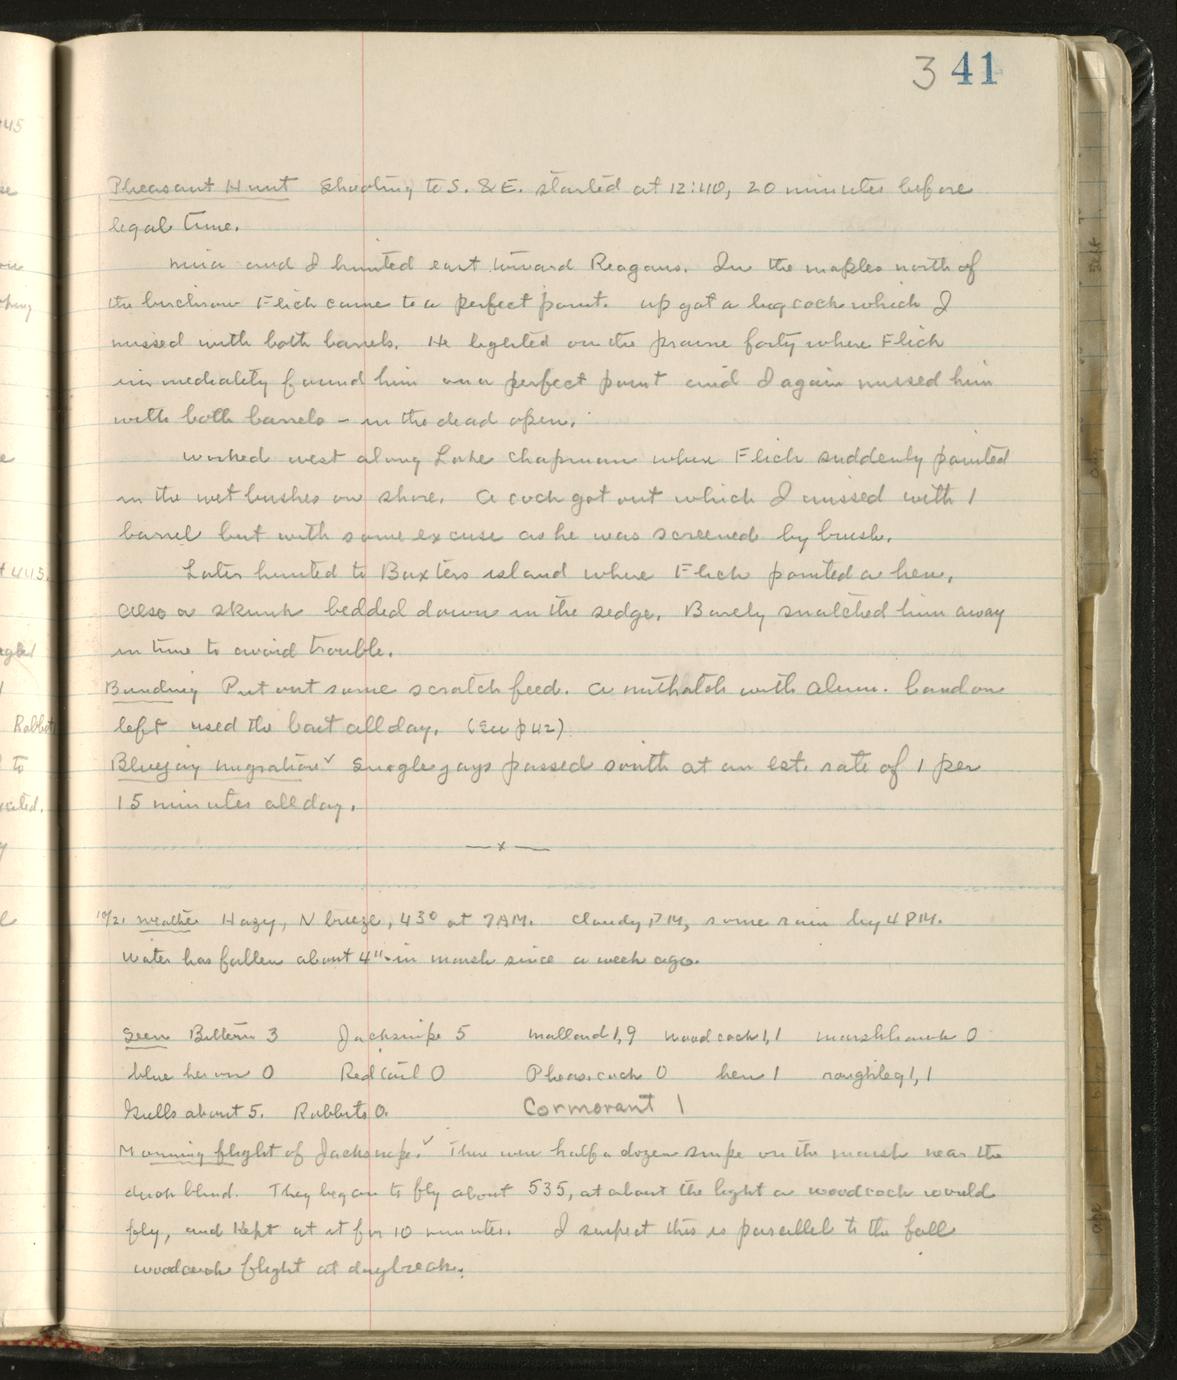 3 41
Pheasant Hunt Shooting to S. & E. started at 12:40, 20 minutes before
legal time.
Nina and I hunted east toward Reagans. In the maples north of
the Flick came to a perfect point. Up got a big cock which I
missed with both barrels. He lighted on the prairie forty where Flick
immediately found him on a perfect point and I again missed him
with both barrels - in the dead open.
Worked west along Lake Chapman where Flick suddenly pointed
in the wet bushes on shore. A cock got out which I missed with 1
barrel but with some excuse as he was screened by brush.
Later hunted to Baxters island where Flick pointed a hen,
also a skunk bedded down in the sedge. Barely snatched him away
in time to avoid trouble.
Banding Put out some scratch feed. A nuthatch with alum. band on
left used the bait all day. (See p 42)
Bluejay migration ✓ Single jays passed south at an est. rate of 1 per
15 minutes all day.
—x—
10/21 Weather Hazy, N breeze, 43° at 7AM. Cloudy PM, some rain by 4 PM.
Water has fallen about 4" in marsh since a week ago.
Seen Bittern 3 Jacksnipe 5 Mallard 1,9 Woodcock 1,1 Marshhawk 0
blue heron 0 Redtail 0 Pheas. cock 0 hen 1 roughleg 1,1
Gulls about 5. Rabbits 0. Cormorant 1
Morning flight of Jacksnipe. ✓ There were half a dozen snipe on the marsh near the
duck blind. They began to fly about 535, at about the light a woodcock would
fly, and kept at it for 10 minutes. I suspect this is parallel to the fall
woodcock flight at daybreak.